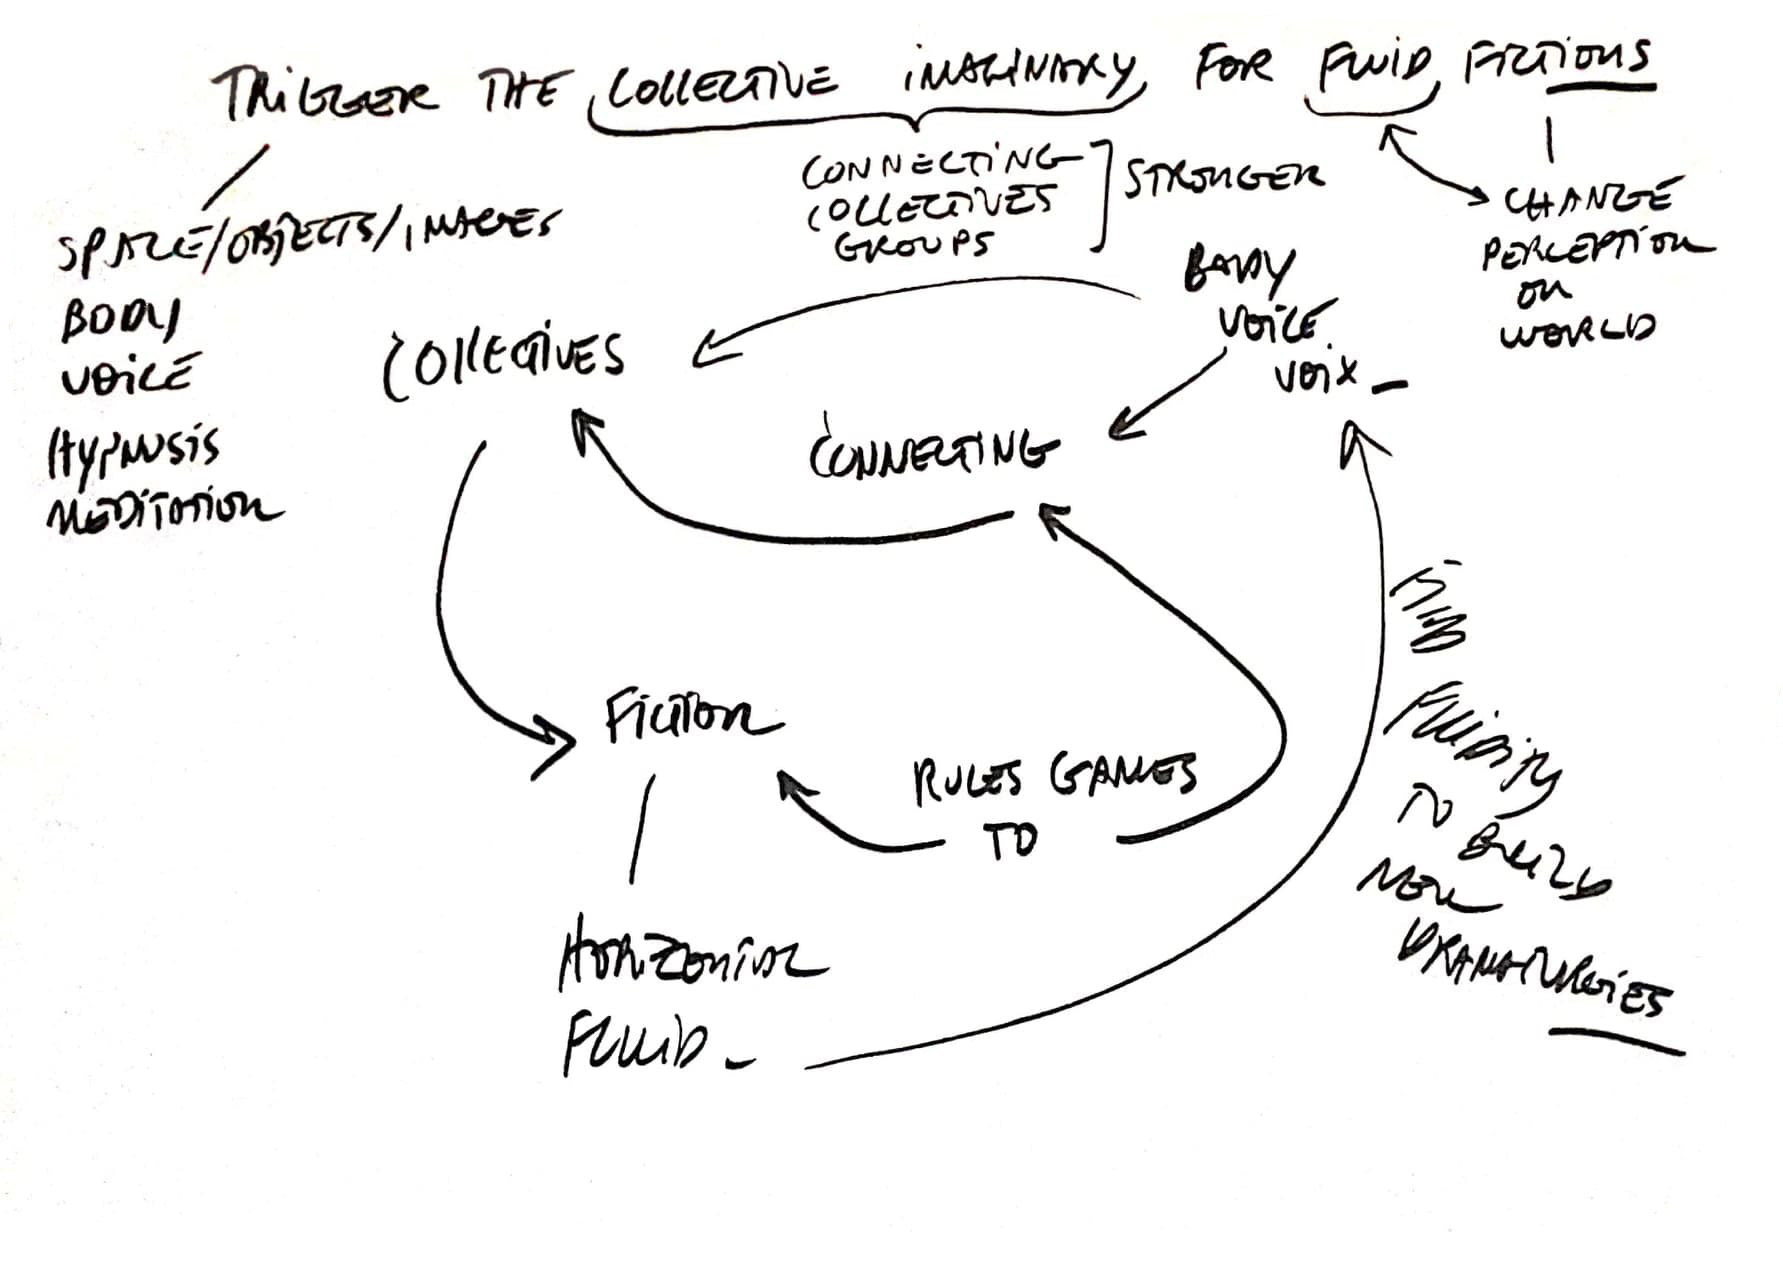 TRIGGER THE COLLECTIVE IMAGINARY FOR FLUID FICTIONS
SPACE/OBJECTS/IMAGES
BODY
VOICE
HYPNOSIS
MEDITATION
CONNECTING
COLLECTIVES
GROUPS
STRONGER
CHANGE
PERCEPTION
ON
WORLD
BODY
VOICE
VOIX
COLLECTIVES
CONNECTING
FICTION
RULES GAMES
TO
HORIZONTAL
FLUID
FLUIDITY
TO BUILD
NEW
DRAMATURGIES